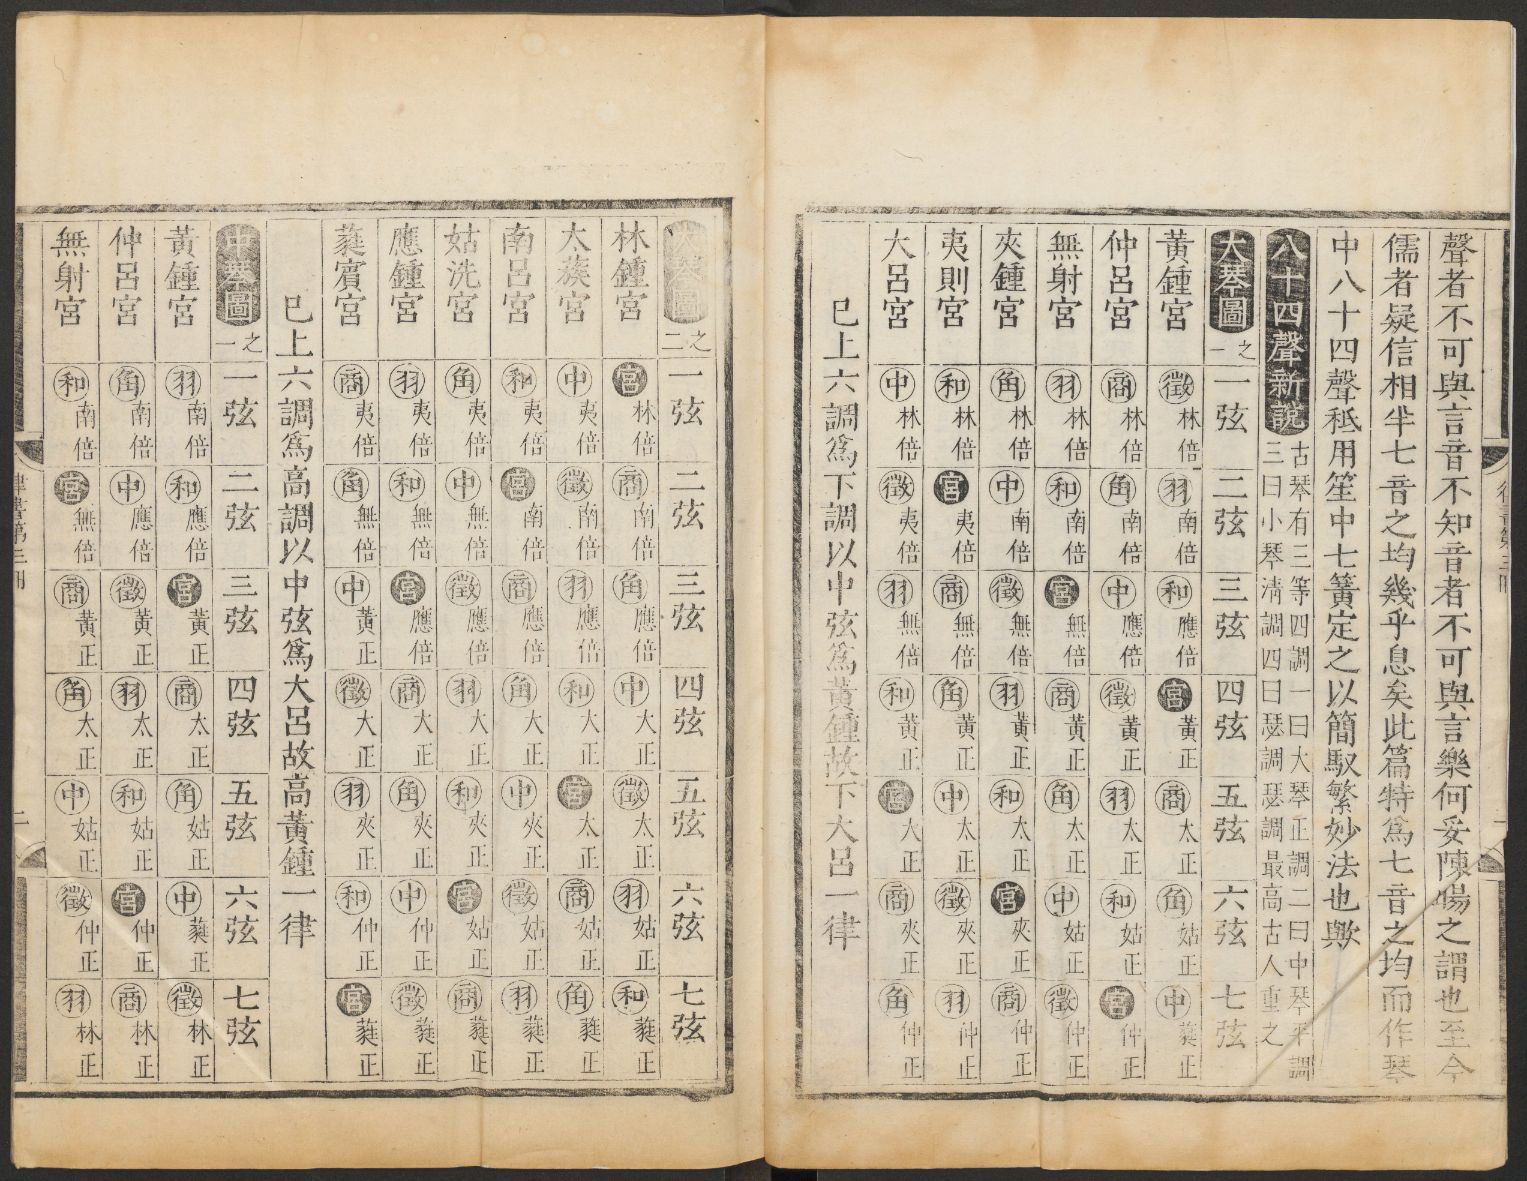 聲者不可與言音不知音者不可與言樂何妥陳暘之謂也至今
儒者疑信相半七音之均幾乎息矣此篇特爲七音之均而作琴
中八十四聲秪用笙中七簧定之以簡馭繁妙法也歟
八十四聲新說
古琴有三等四調一曰大琴正調二曰中琴平調
三曰小琴淸調四曰瑟調瑟調最高古人重之
大琴圖 之一 一弦 二弦 三弦 四弦 五弦 六弦 七弦
黃鍾宮 徵林倍 羽南倍 和應倍 宮黃正 商太正 角姑正 中蕤正
仲呂宮 商林倍 角南倍 中應倍 徵黃正 羽太正 和姑正 宮仲正
無射宮 羽林倍 和南倍 宮無倍 商黃正 角太正 中姑正 徵仲正
夾鍾宮 角林倍 中南倍 徵無倍 羽黃正 和太正 宮夾正 商仲正
夷則宮 和林倍 宮夷倍 商無倍 角黃正 中太正 徵夾正 羽仲正
大呂宮 中林倍 徵夷倍 羽無倍 和黃正 宮大正 商夾正 角仲正
已上六調爲下調以中弦爲黃鍾故下大呂一律
大琴圖 之二 一弦 二弦 三弦 四弦 五弦 六弦 七弦
林鍾宮 宮林倍 商南倍 角應倍 中大正 徵太正 羽姑正 和蕤正
太蔟宮 中夷倍 徵南倍 羽應倍 和大正 宮太正 商姑正 角蕤正
南呂宮 和夷倍 宮南倍 商應倍 角大正 中夾正 徵姑正 羽蕤正
姑洗宮 角夷倍 中無倍 徵應倍 羽大正 和夾正 宮姑正 商蕤正
應鍾宮 羽夷倍 和無倍 宮應倍 商大正 角夾正 中仲正 徵蕤正
蕤賓宮 商夷倍 角無倍 中黃正 徵大正 羽夾正 和仲正 宮蕤正
已上六調爲高調以中弦爲大呂故高黃鍾一律
中琴圖 之一 一弦 二弦 三弦 四弦 五弦 六弦 七弦
黃鍾宮 羽南倍 和應倍 宮黃正 商太正 角姑正 中蕤正 徵林正
仲呂宮 角南倍 中應倍 徵黃正 羽太正 和姑正 宮仲正 商林正
無射宮 和南倍 宮無倍 商黃正 角太正 中姑正 徵仲正 羽林正
律書第三冊 二